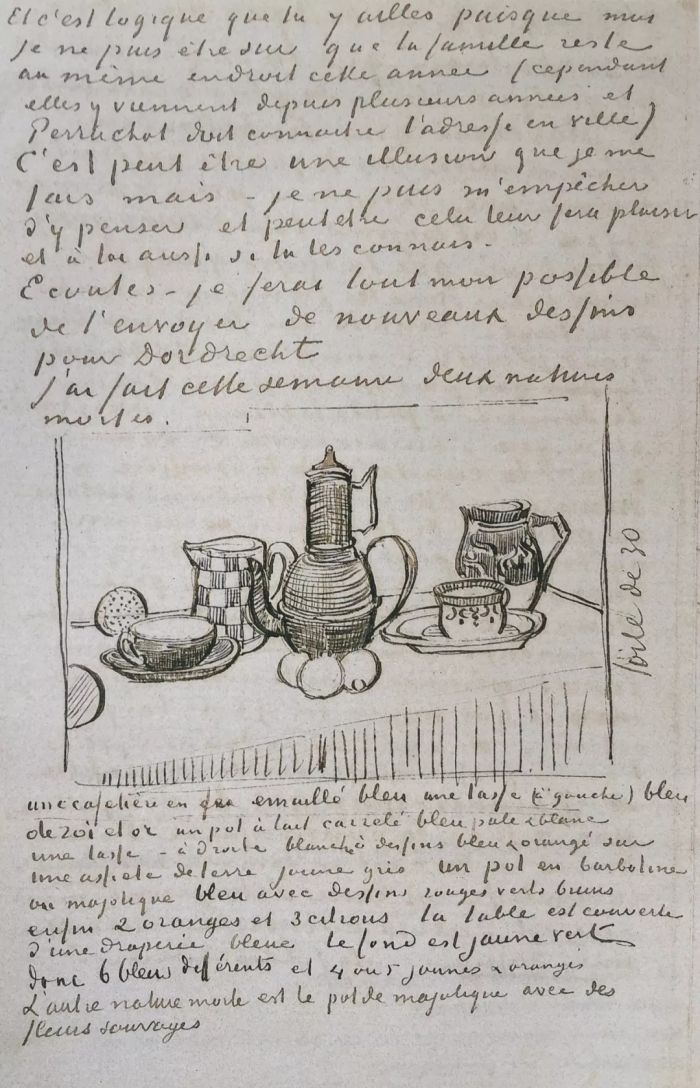 Et c'est logique que tu y ailles puisque moi
je ne puis être sur que la famille reste
au même endroit cette annee (cependant
elles y viennent depuis plusieurs annees et
Perruchot doit connaitre l'adresse en ville)
C'est peut être une illusion que je me
fais mais – je ne puis m'empêcher
d'y penser et peutetre cela leur fera plaisir
et à toi aussi si tu les connais.
Ecoutes – je ferai tout mon possible
de t'envoyer de nouveaux dessins
pour Dordrecht
J'ai fait cette semaine deux natures
mortes.
toile de 30
une cafetière en fer emaillé bleu une tasse (à gauche) bleu
de roi et or un pot à lait carrelé bleu pale & blanc
une tasse – à droite blanche à dessins bleu & orangé sur
une assiete de terre jaune gris un pot en barbotine
ou majolique bleu avec dessins rouges verts bruns
enfin 2 oranges et 3 citrons la table est couverte
d'une draperie bleue le fond est jaune vert
donc 6 bleus différents et 4 ou 5 jaunes & orangés
L'autre nature morte est le pot de majolique avec des
fleurs sauvages